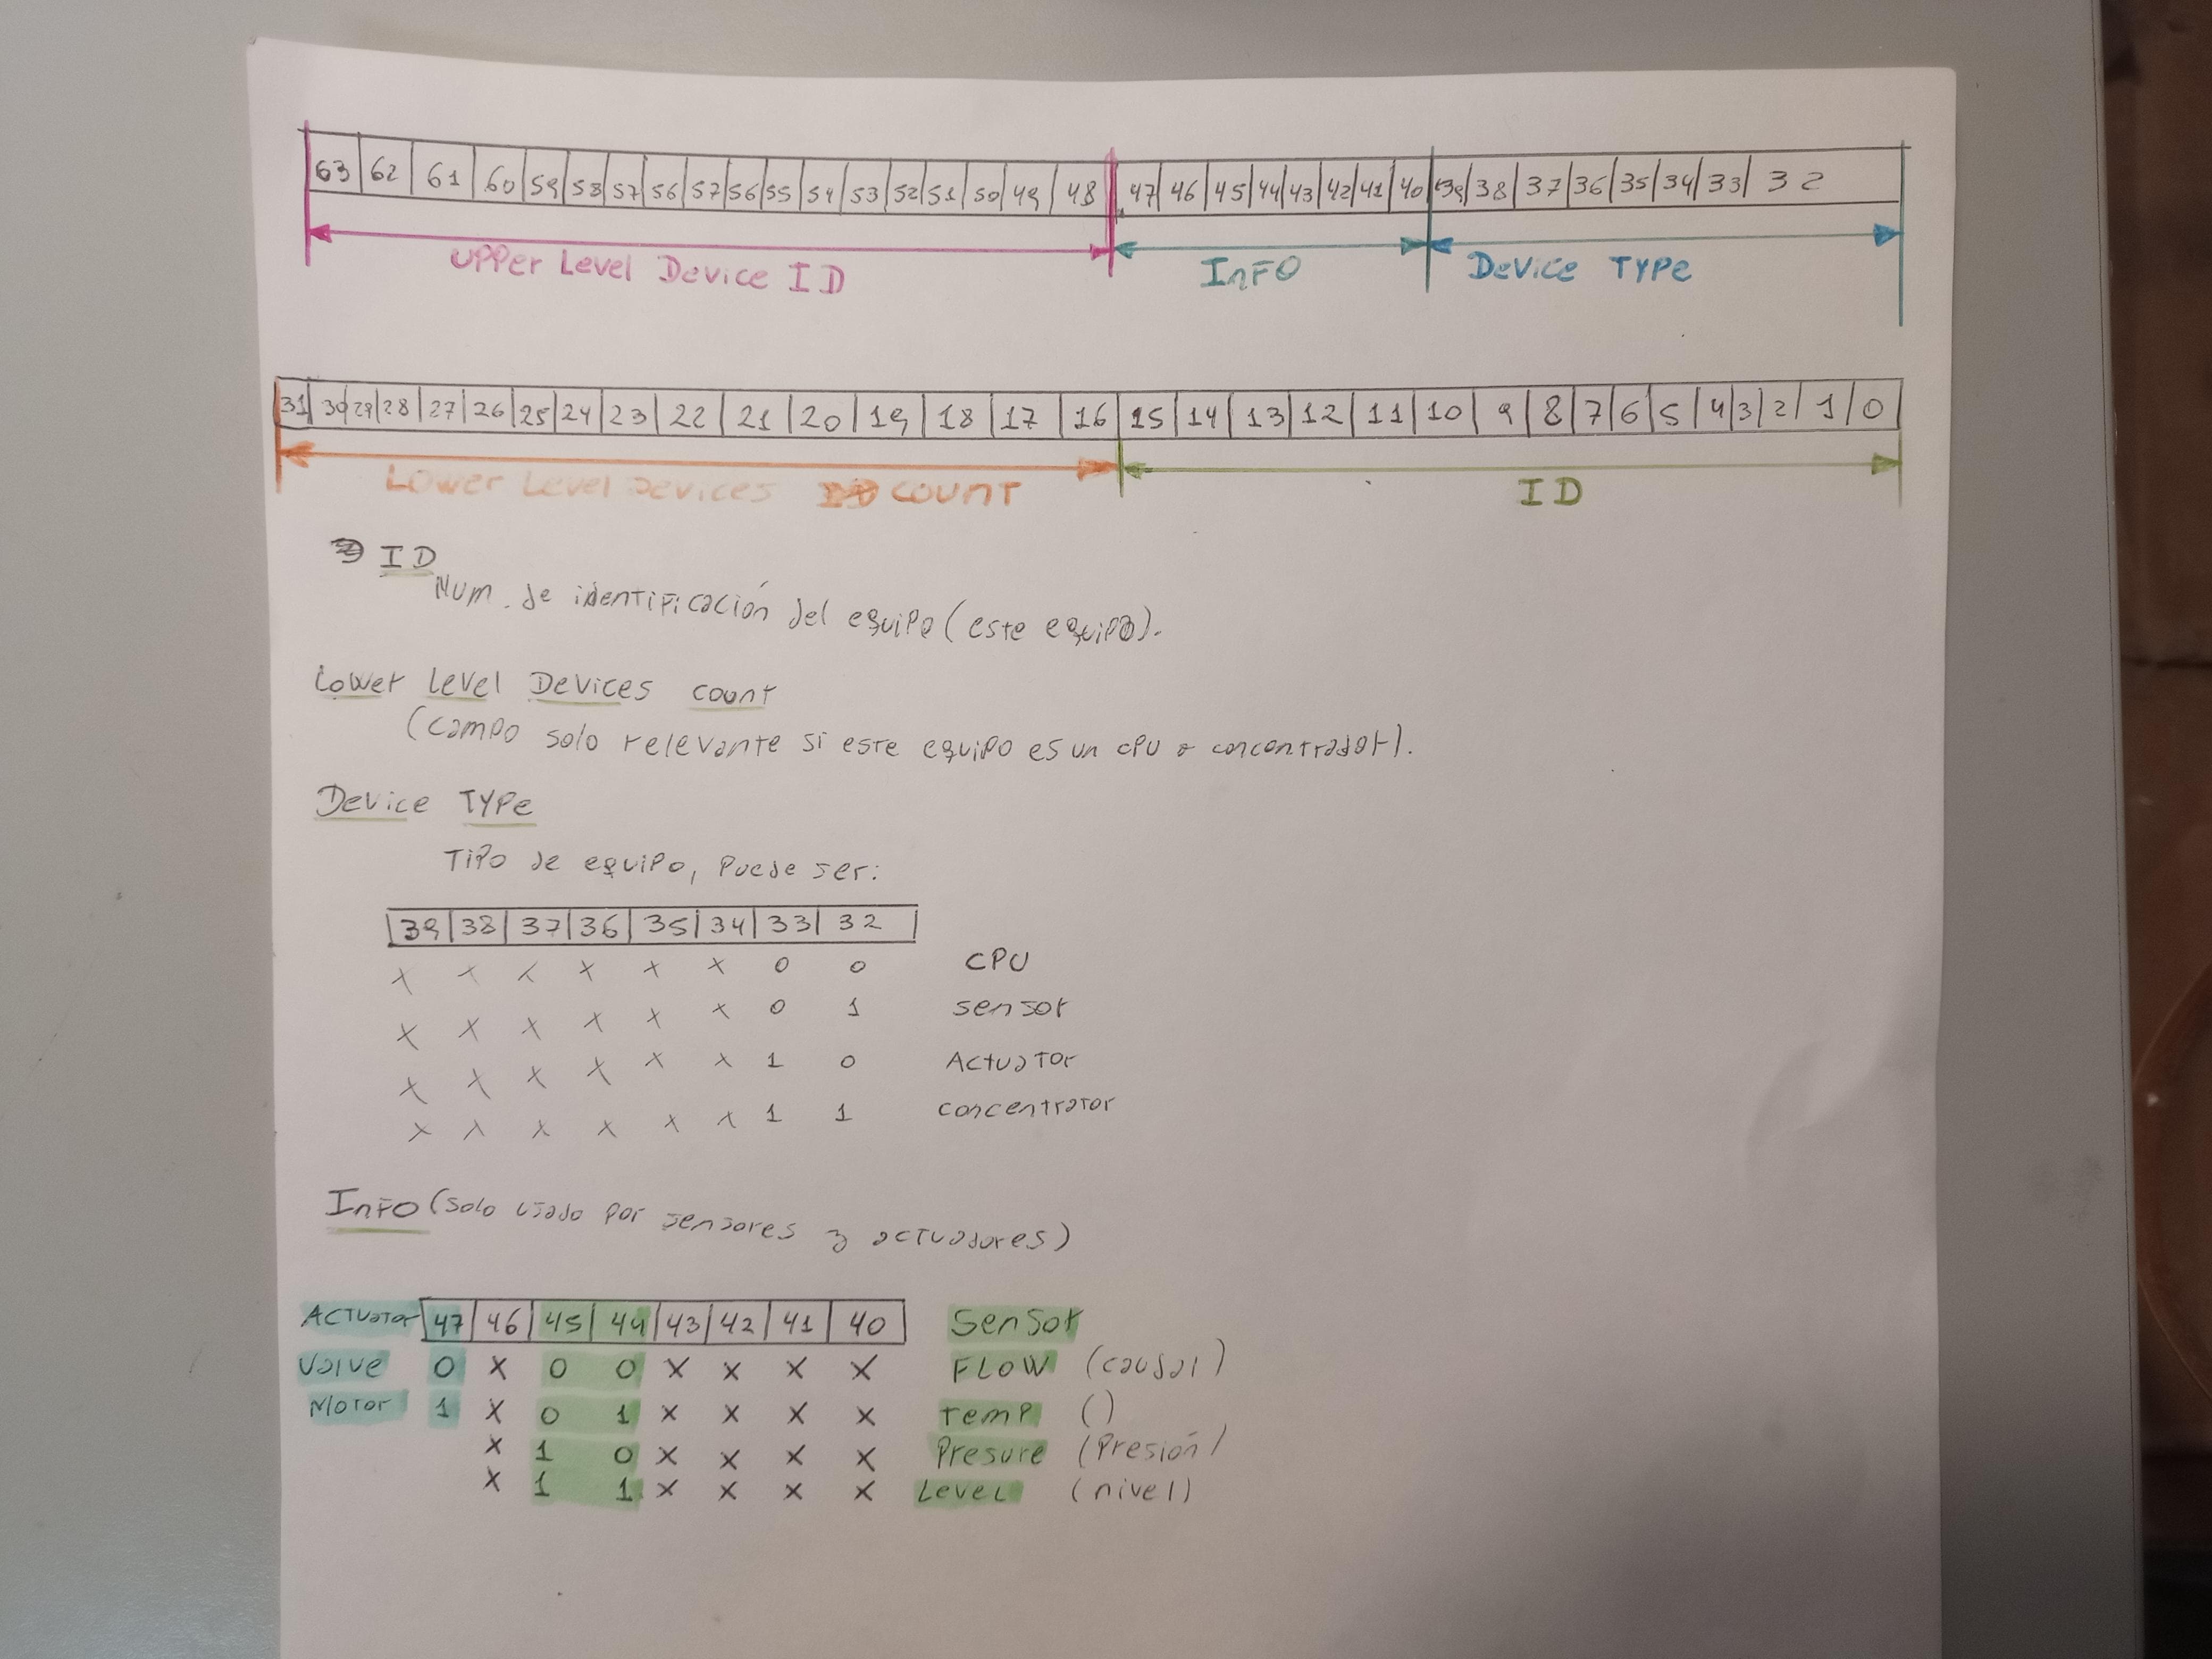 63 62 61 60 59 58 57 56 57 56 55 54 53 52 51 50 49 48 47 46 45 44 43 42 41 40 39 38 37 36 35 34 33 32
UPPer Level Device ID InFO Device TYPe
31 30 29 28 27 26 25 24 23 22 21 20 19 18 17 16 15 14 13 12 11 10 9 8 7 6 5 4 3 2 1 0
Lower Level Devices COUNT ID
ID
Num. de identificación del equipo (este equipo).
Lower Level Devices count
(campo solo relevante si este equipo es un cpu o concentrador).
Device TYPe
Tipo de equipo, Puede ser:
39 38 37 36 35 34 33 32
x x x x x x 0 0 CPU
x x x x x x 0 1 sensor
x x x x x x 1 0 Actuator
x x x x x x 1 1 concentrator
InFO (solo usado por sensores y actuadores)
Actuator 47 46 45 44 43 42 41 40 Sensor
Valve 0 x 0 0 x x x x FLOW (caudal)
Motor 1 x 0 1 x x x x Temp ()
x 1 0 x x x x Presure (Presión)
x 1 1 x x x x Level (nivel)